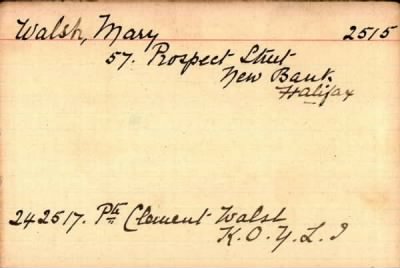 Walsh, Mary 2515
57. Prospect Street
New Bank
Halifax
242517. Pte Clement Walsh
K.O.Y.L.I